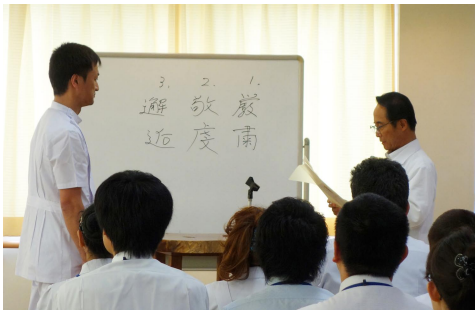 1. 厳粛
2. 敬虔
3. 邂逅